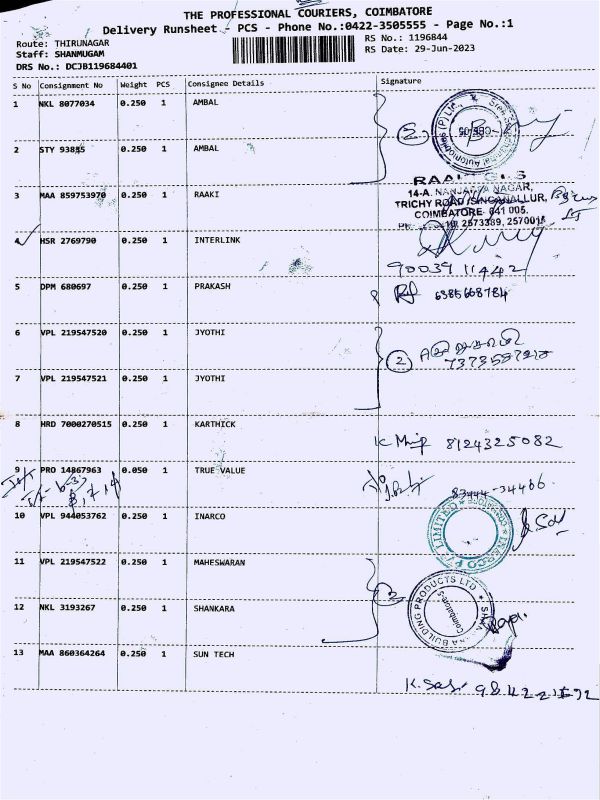 THE PROFESSIONAL COURIERS, COIMBATORE
Delivery Runsheet - PCS - Phone No.:0422-3505555 - Page No.:1
Route: THIRUNAGAR
Staff: SHANMUGAM
DRS No.: DCJB119684401
RS No.: 1196844
RS Date: 29-Jun-2023
S No Consignment No Weight PCS Consignee Details Signature
1 NKL 8077034 0.250 1 AMBAL
2 STY 93885 0.250 1 AMBAL
3 MAA 859753970 0.250 1 RAAKI
14-A. NANJAPPA NAGAR,
TRICHY ROAD, SINGANALLUR,
COIMBATORE - 641 005.
2573389, 2570018
4 HSR 2769790 0.250 1 INTERLINK
90039 11442
5 DPM 680697 0.250 1 PRAKASH
6385668784
6 VPL 219547520 0.250 1 JYOTHI
2
7 VPL 219547521 0.250 1 JYOTHI
8 HRD 7000270515 0.250 1 KARTHICK
8124325082
9 PRO 14867963 0.050 1 TRUE VALUE
83444-34466
10 VPL 944053762 0.250 1 INARCO
INARCO LIMITED
11 VPL 219547522 0.250 1 MAHESWARAN
12 NKL 3193267 0.250 1 SHANKARA
BUILDING PRODUCTS LTD
Coimbatore-5
13 MAA 860364264 0.250 1 SUN TECH
K. Sasi